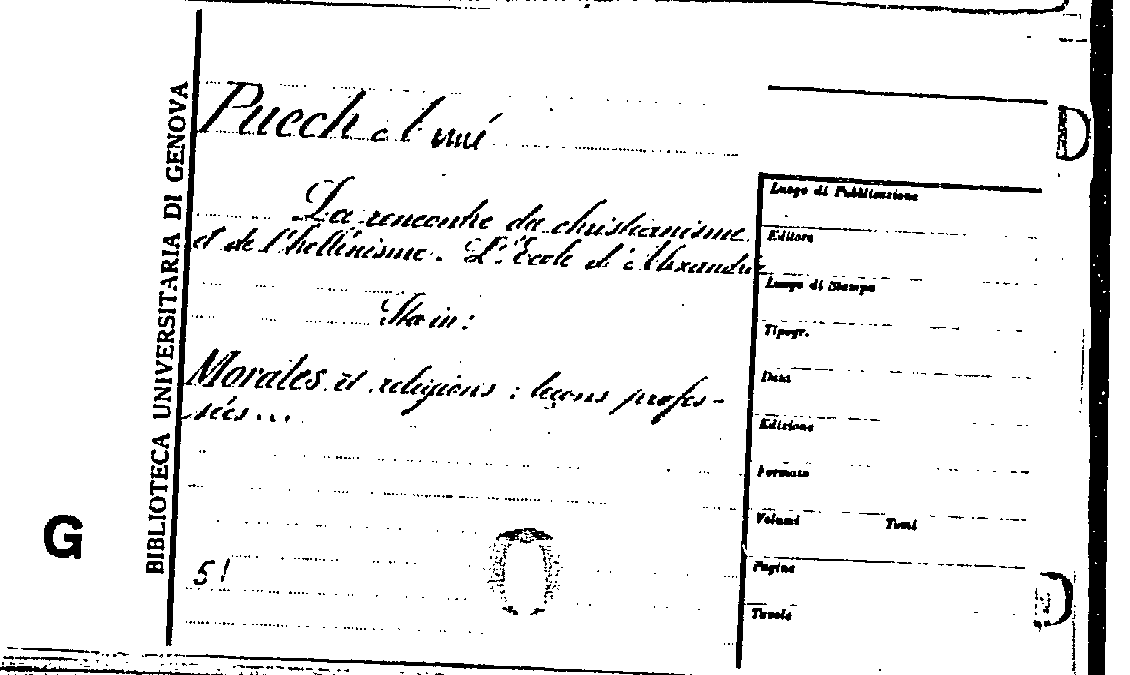 BIBLIOTECA UNIVERSITARIA DI GENOVA
G
Puech Aimé
La rencontre du christianisme
et de l'hellénisme. L'École d'Alexandrie
Sta in:
Morales et religions : leçons profes-
sées...
51
Luogo di Pubblicazione
Editore
Luogo di Stampa
Tipogr.
Data
Edizione
Formato
Volumi Tomi
Pagine
Tavole